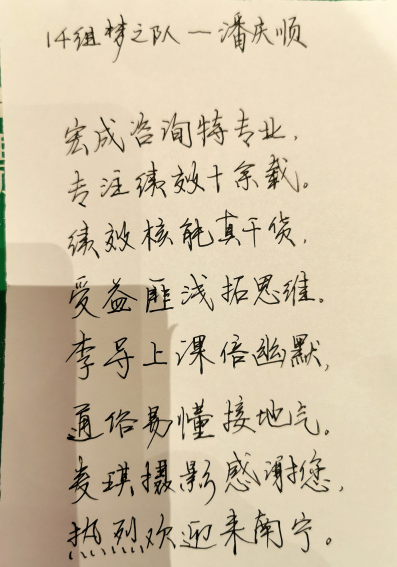 14组梦之队一潘庆顺
宏成咨询特专业，
专注绩效十余载。
绩效核能真干货，
受益匪浅拓思维。
李导上课倍幽默，
通俗易懂接地气。
麦琪摄影感谢您，
热烈欢迎来南宁。